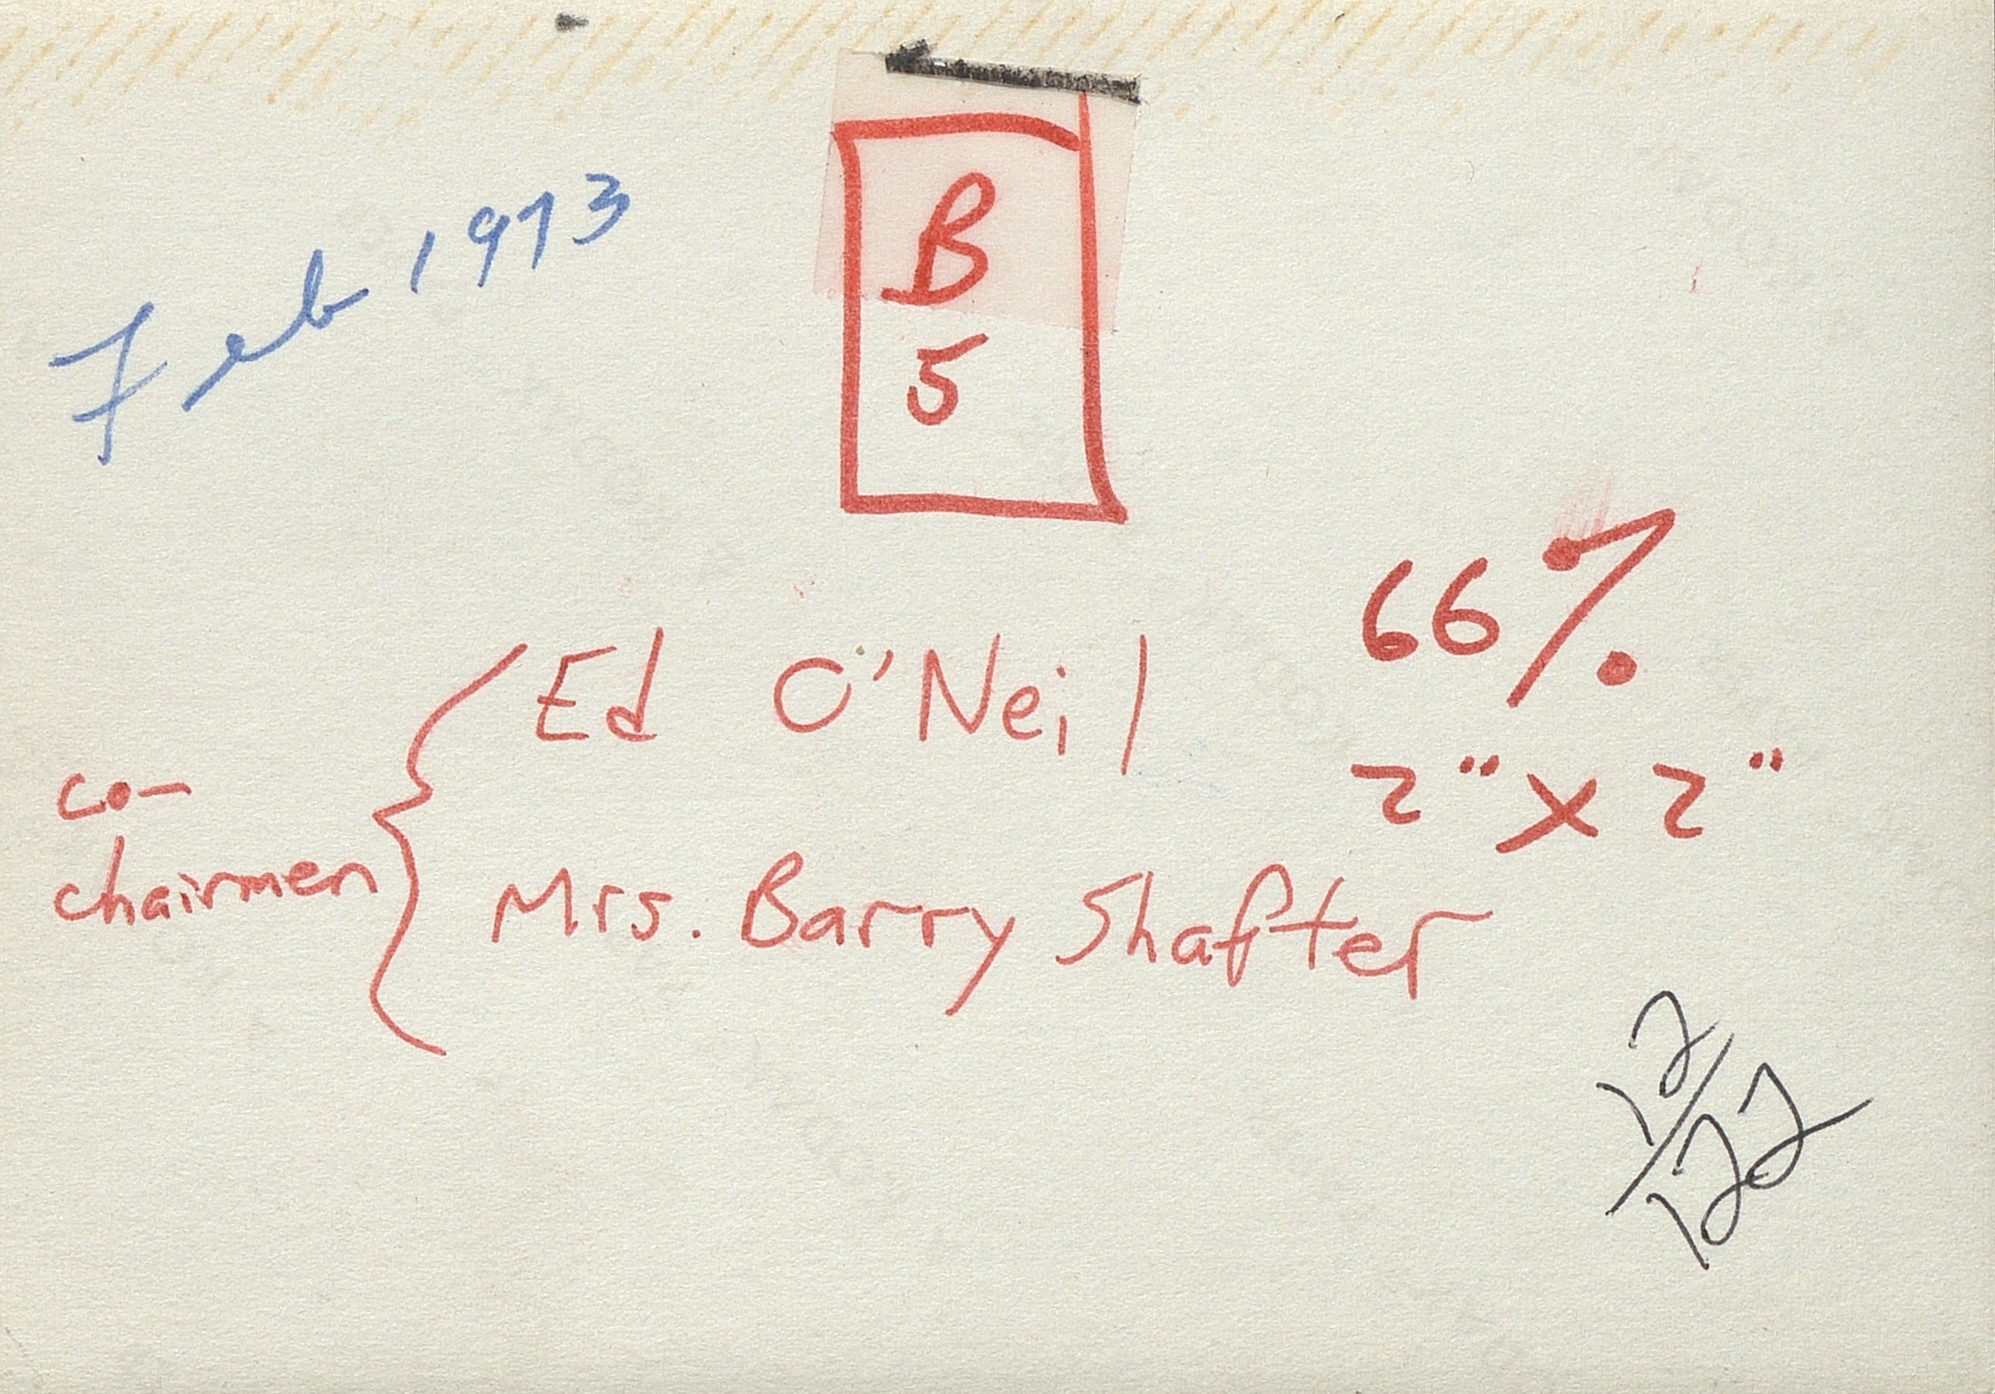 Feb 1973
B
5
66%
2" x 2"
co-
chairmen
Ed O'Neil
Mrs. Barry Shafter